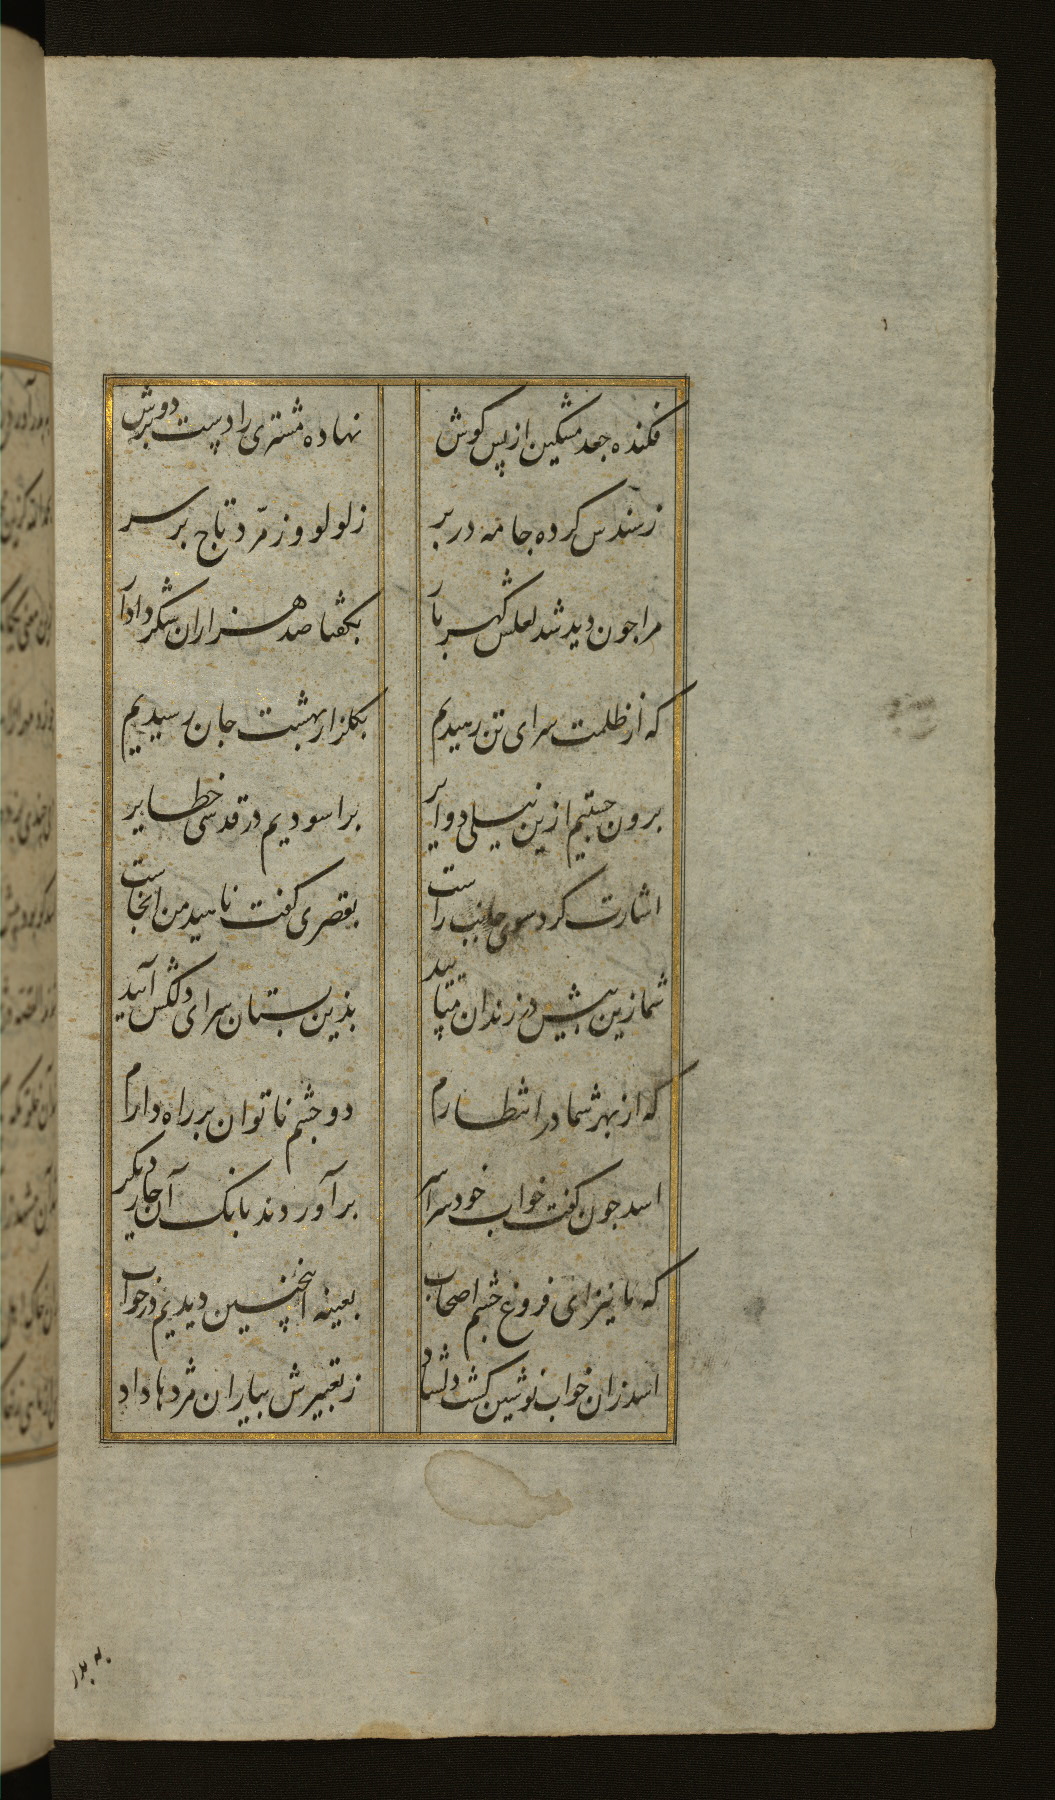 فکنده جعد مشکین از پس کوش
نهاده مشتری را دست بر دوش
ز سندس کرده جامه در بر
ز لولو و ز مرّد تاج بر سر
مرا جون دید شد لعلش کهر بار
بکفتا صد هزاران شکر دادار
که از ظلمت سرای تن رمیدیم
بکلزار بهشت جان رسیدیم
برون جستیم ازین نیلی دوایر
براسودیم در قدسی خطایر
اشارت کرد سوی جانب راست
بقصری کفت ناهید من انجاست
شما زین بیش در زندان مپایید
بذین بستان سرای دلکش آیید
که از بهر شما در انتظارم
دو جشم ناتوان بر راه دارم
اسد جون کفت خواب خود سراسر
برآوردند بانک آن جار دیکر
که ما نیز ای فروغ جشم اصحاب
بعینه اینچنین دیدیم در خواب
اسد زان خواب نوشین کشت دلشاد
ز تعبیرش بیاران مژدها داد
به بدر